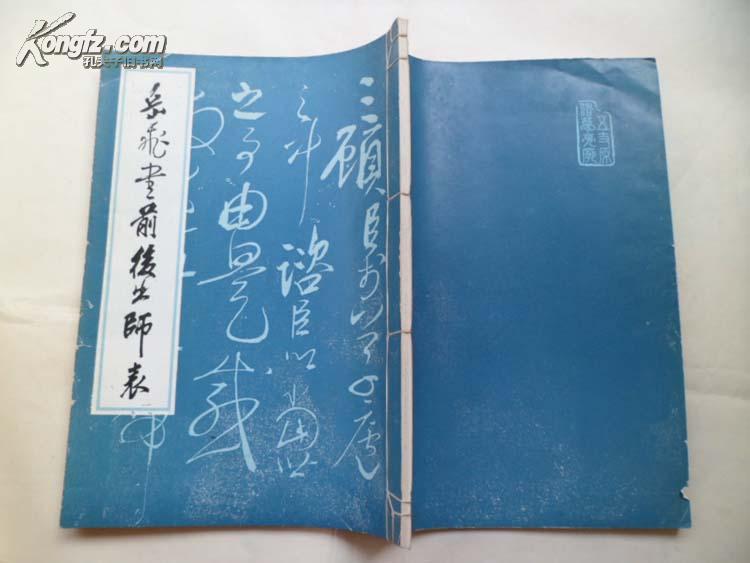 Kongfz.com
孔夫子旧书网
岳飛書前後出師表
三顧臣於草廬
之中諮臣以當世
之事由是感
五丈原
諸葛亮廟